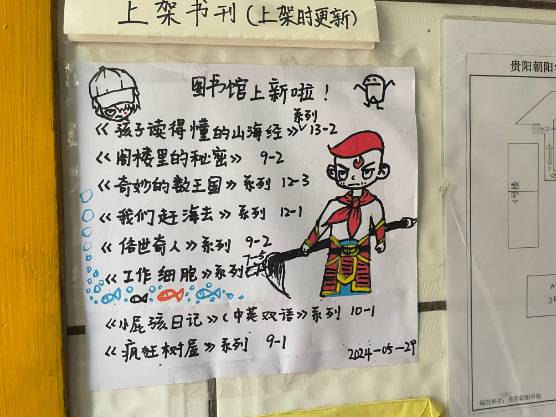 上架书刊(上架时更新)
图书馆上新啦!
《孩子读得懂的山海经》系列 13-2
《阁楼里的秘密》 9-2
《奇妙的数王国》系列 12-3
《我们赶海去》系列 12-1
《俗世奇人》系列 9-2
《工作细胞》系列 7-5
《小屁孩日记》(中英双语)系列 10-1
《疯狂树屋》系列 9-1
2024-05-29
贵阳朝阳